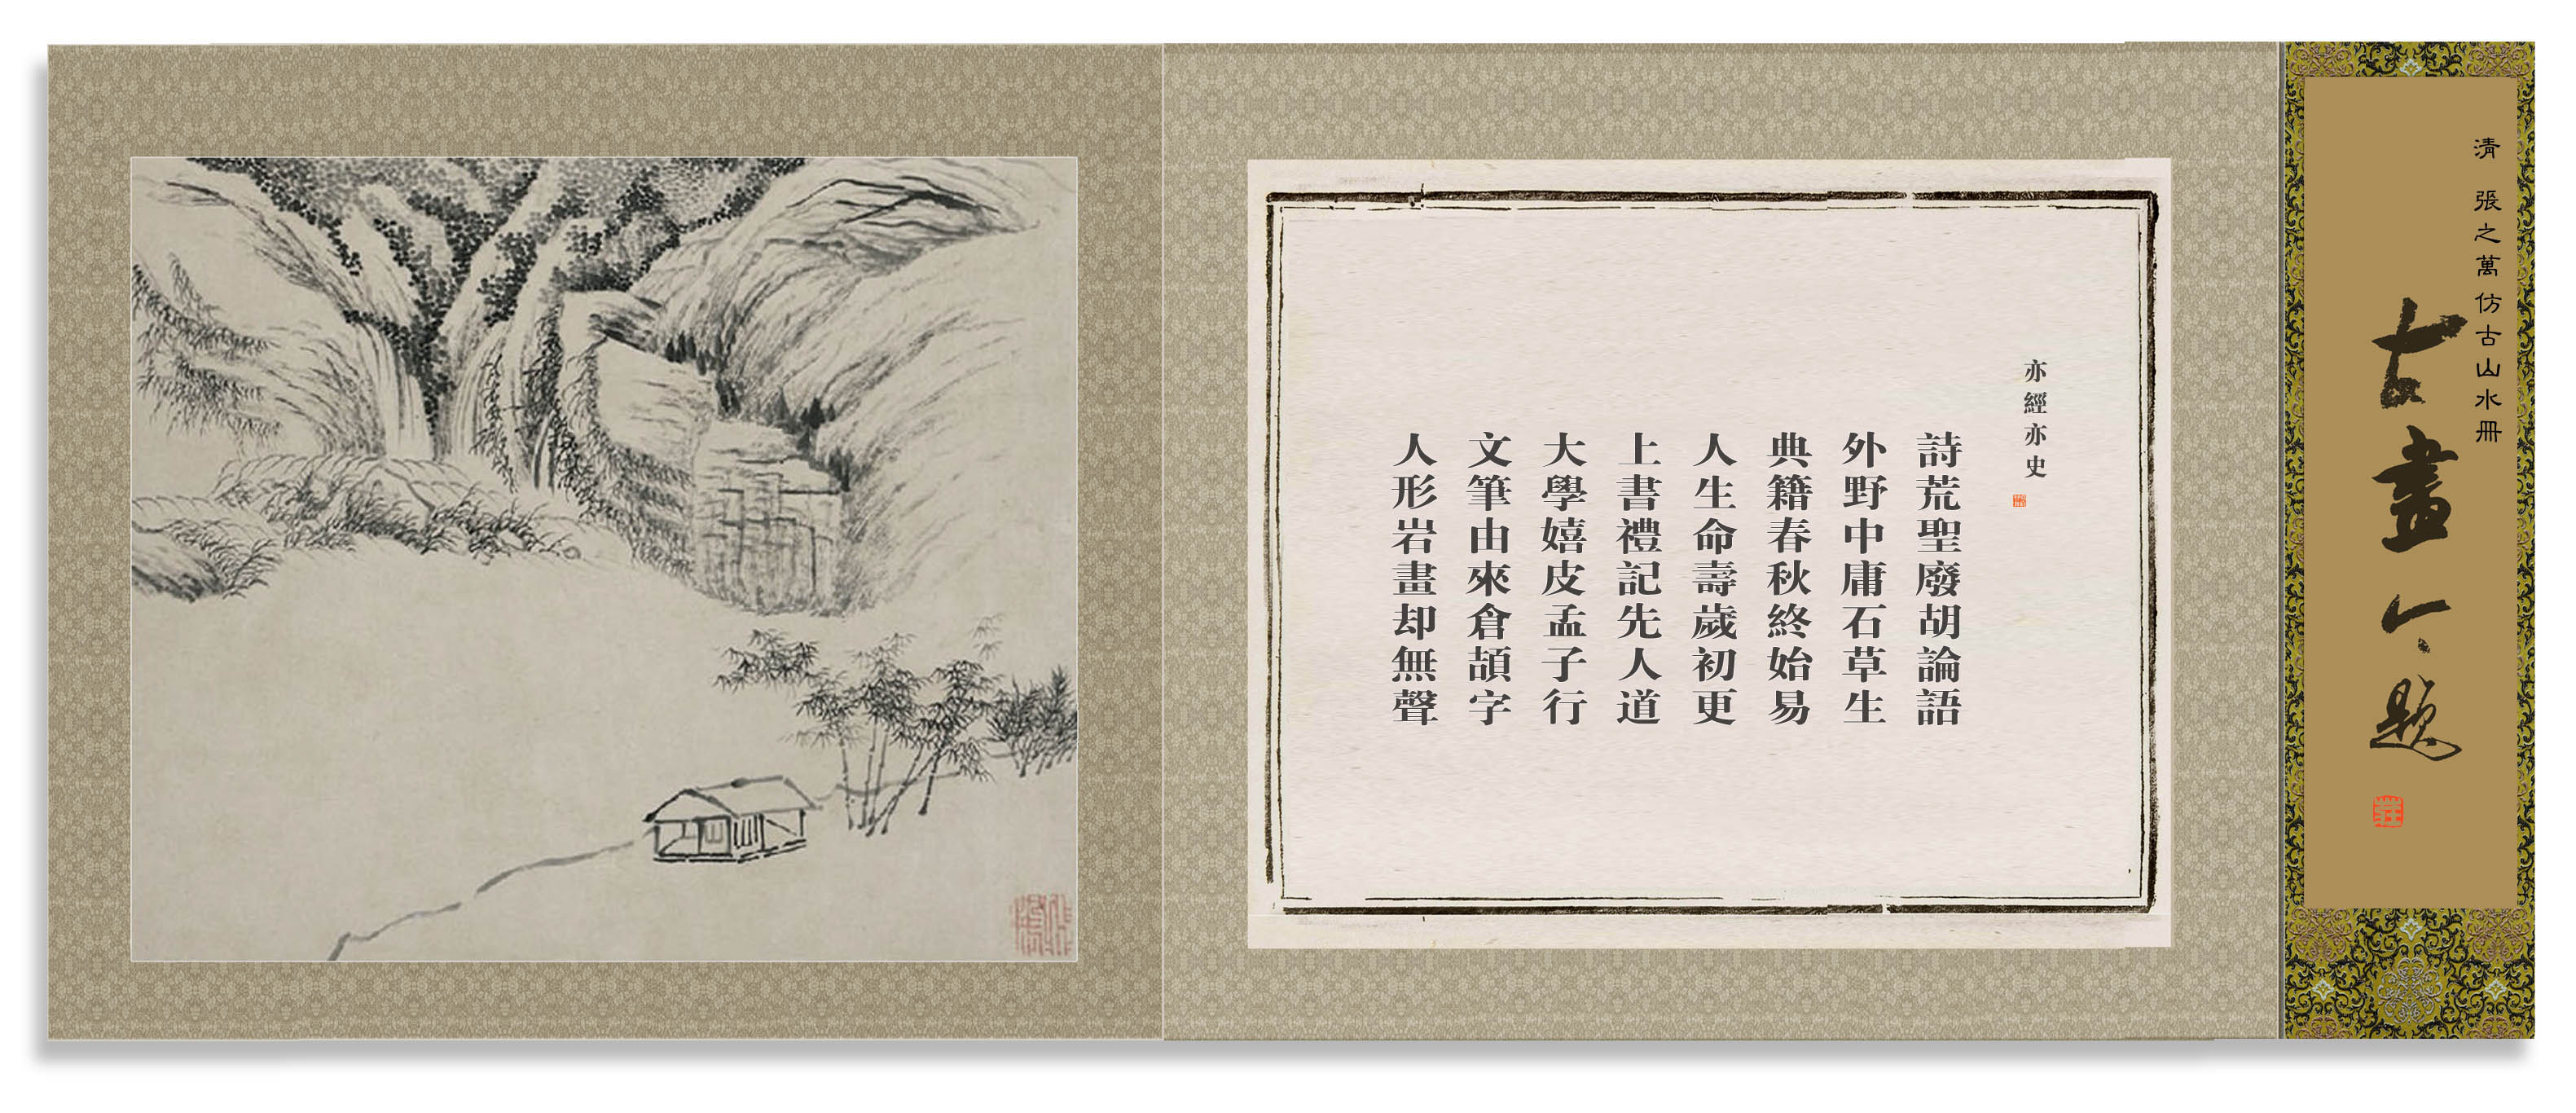 清 張之萬仿古山水冊
古畫今題
亦經亦史
詩荒聖廢胡論語
外野中庸石草生
典籍春秋終始易
人生命壽歲初更
上書禮記先人道
大學嬉皮孟子行
文筆由來倉頡字
人形岩畫却無聲